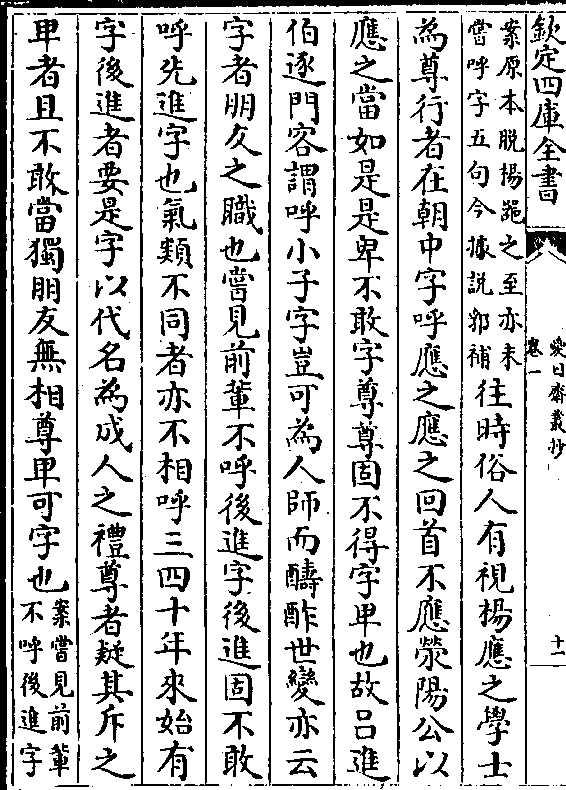 欽定四庫全書
愛日齋叢抄
卷一
十一
案原本脱楊器之至亦未
嘗呼字五句今據説郛補
往時俗人有視楊應之學士
為尊行者在朝中字呼應之應之回首不應滎陽公以
應之當如是是卑不敢字尊尊固不得字卑也故吕進
伯逐門客謂呼小子字豈可為人師而醻酢世變亦云
字者朋友之職也嘗見前輩不呼後進字後進固不敢
呼先進字也氣類不同者亦不相呼三四十年來始有
字後進者要是字以代名為成人之禮尊者疑其斥之
卑者且不敢當獨朋友無相尊卑可字也
案嘗見前輩
不呼後進字